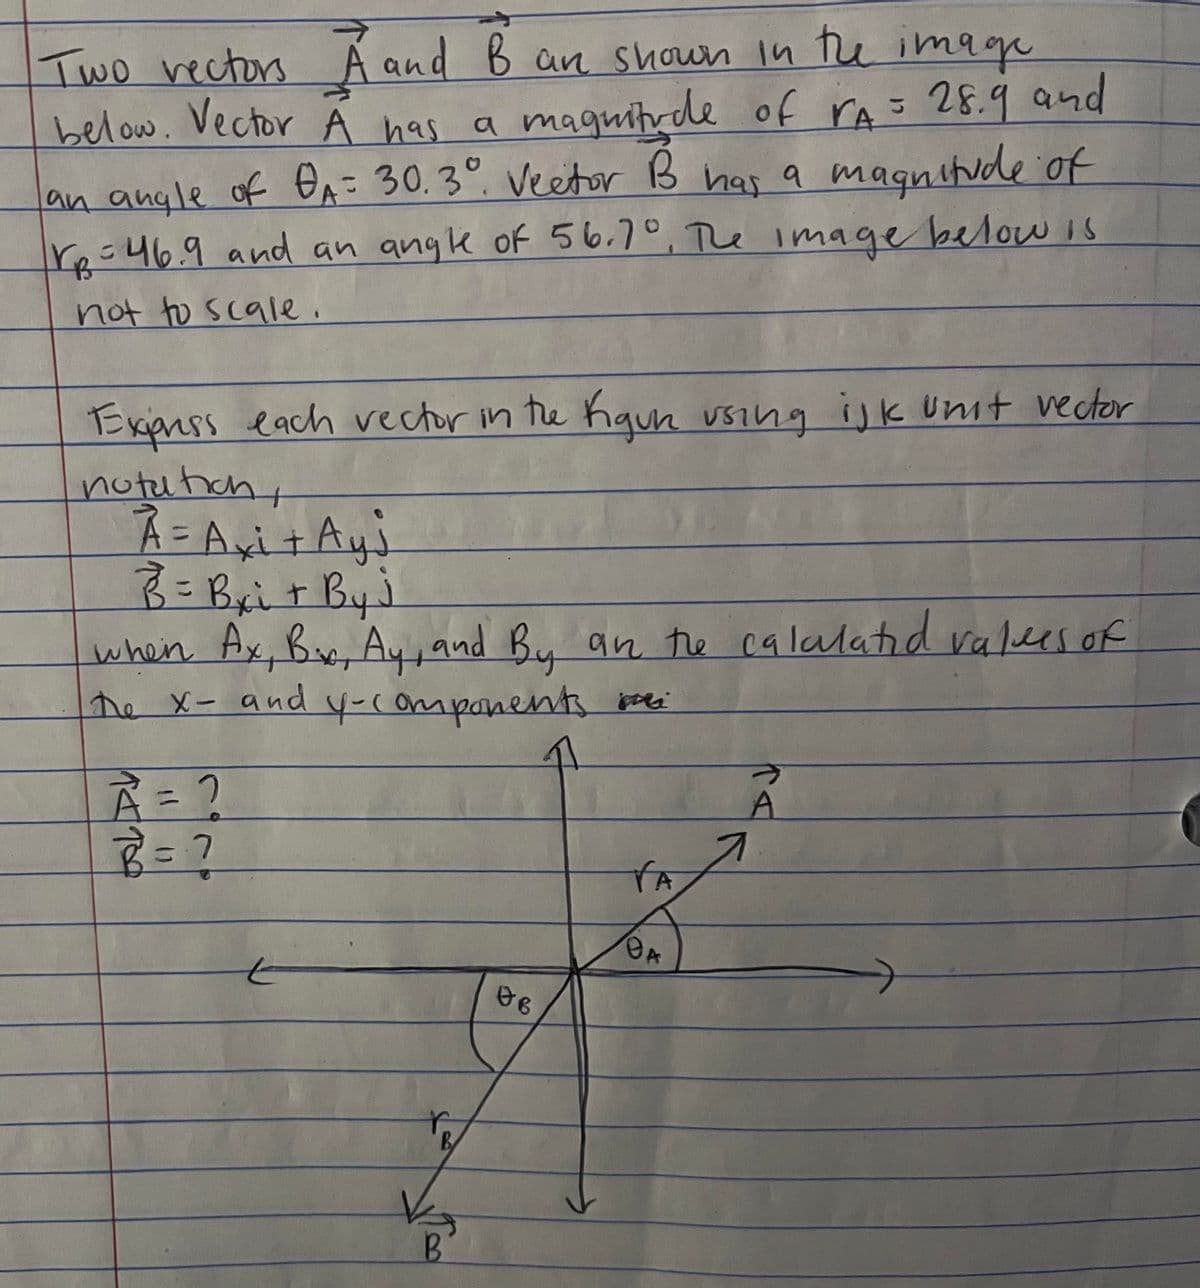 Two vectors A and B are shown in the image
below. Vector A has a magnitude of rA = 28.9 and
an angle of θA = 30.3°. Vector B has a magnitude of
rB = 46.9 and an angle of 56.7°. The image below is
not to scale.
Express each vector in the figure using ijk unit vector
notation,
A = Axi + Ayj
B = Bxi + Byj
where Ax, Bx, Ay, and By are the calculated values of
the x- and y-components
A = ?
B = ?
A
rA
θA
θB
rB
B